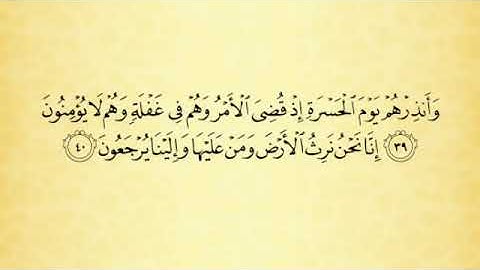 وَأَنذِرْهُمْ يَوْمَ الْحَسْرَةِ إِذْ قُضِيَ الْأَمْرُ وَهُمْ فِي غَفْلَةٍ وَهُمْ لَا يُؤْمِنُونَ
﴿٣٩﴾ إِنَّا نَحْنُ نَرِثُ الْأَرْضَ وَمَنْ عَلَيْهَا وَإِلَيْنَا يُرْجَعُونَ ﴿٤٠﴾